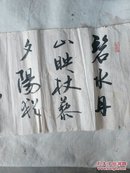 碧水丹
山映杖藜
夕陽猶